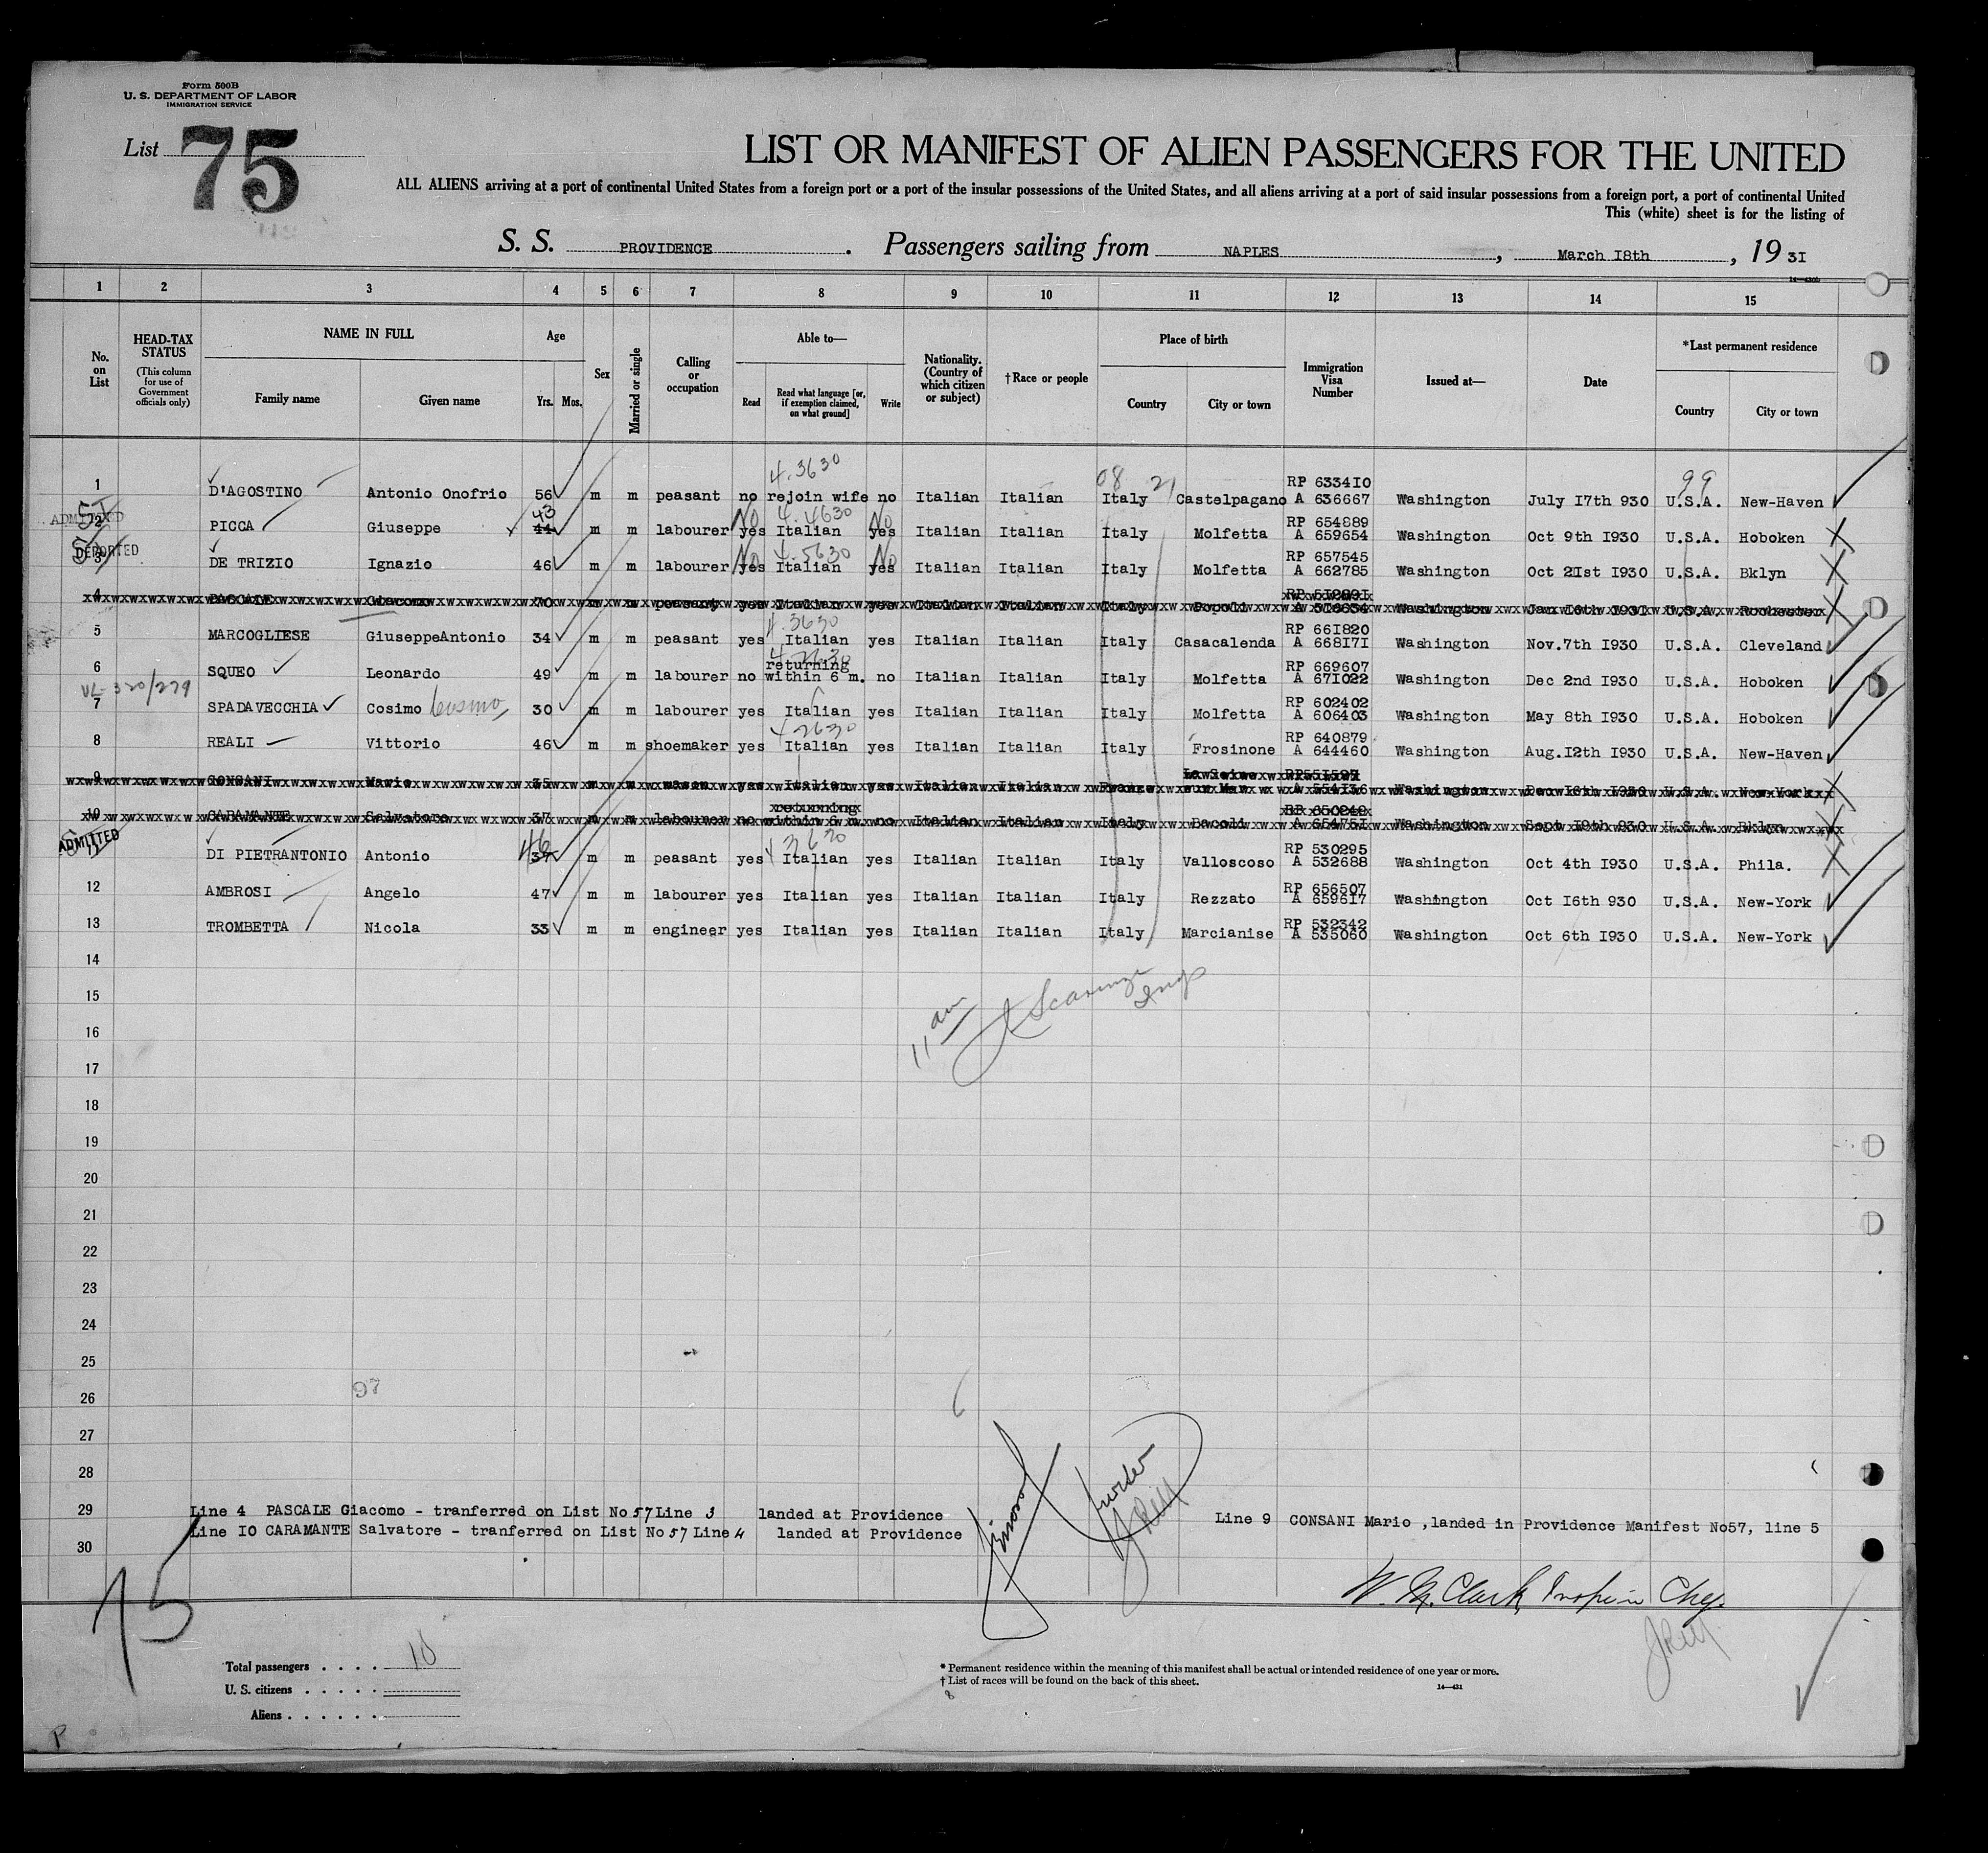 Form 500B
U. S. DEPARTMENT OF LABOR
IMMIGRATION SERVICE
List 75
LIST OR MANIFEST OF ALIEN PASSENGERS FOR THE UNITED
ALL ALIENS arriving at a port of continental United States from a foreign port or a port of the insular possessions of the United States, and all aliens arriving at a port of said insular possessions from a foreign port, a port of continental United
This (white) sheet is for the listing of
S. S. PROVIDENCE. Passengers sailing from NAPLES, March I8th, 19 3I
1 2 3 4 5 6 7 8 9 10 11 12 13 14 15
No. on List
HEAD-TAX STATUS
(This column for use of Government officials only)
NAME IN FULL
Family name Given name
Age
Yrs. Mos.
Sex
Married or single
Calling or occupation
Able to—
Read
Read what language [or, if exemption claimed, on what ground]
Write
Nationality. (Country of which citizen or subject)
†Race or people
Place of birth
Country City or town
Immigration Visa Number
Issued at—
Date
*Last permanent residence
Country City or town
4.3630 08 21 99
1 D'AGOSTINO Antonio Onofrio 56 m m peasant no rejoin wife no Italian Italian Italy Castelpagano RP 6334I0 A 636667 Washington July I7th 930 U.S.A. New-Haven
ADMITTED 43 No 4.4630 No
2 PICCA Giuseppe 44 m m labourer yes Italian yes Italian Italian Italy Molfetta RP 654889 A 659654 Washington Oct 9th I930 U.S.A. Hoboken
DEPORTED No 4.5630 No
3 DE TRIZIO Ignazio 46 m m labourer yes Italian yes Italian Italian Italy Molfetta RP 657545 A 662785 Washington Oct 2Ist I930 U.S.A. Bklyn
4 PASCALE Giacomo 70 m m peasant yes Italian yes Italian Italian Italy Washington U.S.A. Rochester
4.3630
5 MARCOGLIESE GiuseppeAntonio 34 m m peasant yes Italian yes Italian Italian Italy Casacalenda RP 66I820 A 668I7I Washington Nov.7th I930 U.S.A. Cleveland
6 SQUEO Leonardo 49 m m labourer no returning within 6 m. no Italian Italian Italy Molfetta RP 669607 A 67I022 Washington Dec 2nd I930 U.S.A. Hoboken
VL 320/279
7 SPADAVECCHIA Cosimo Cosmo 30 m m labourer yes Italian yes Italian Italian Italy Molfetta RP 602402 A 606403 Washington May 8th I930 U.S.A. Hoboken
4 2630
8 REALI Vittorio 46 m m shoemaker yes Italian yes Italian Italian Italy Frosinone RP 640879 A 644460 Washington Aug.I2th I930 U.S.A. New-Haven
9 CONSANI Mario 35 m m mason yes Italian yes Italian Italian France La Seine sur Mer A 554I36 Washington U.S.A. New-York
10 CARAMANTE Salvatore 37 m m labourer no returning within 6 m. no Italian Italian Italy Bacoli A 65475I Washington Sept I9th 930 U.S.A. Bklyn
ADMITTED 46
11 DI PIETRANTONIO Antonio m m peasant yes Italian yes Italian Italian Italy Valloscoso RP 530295 A 532688 Washington Oct 4th I930 U.S.A. Phila.
12 AMBROSI Angelo 47 m m labourer yes Italian yes Italian Italian Italy Rezzato RP 656507 A 6596I7 Washington Oct I6th 930 U.S.A. New-York
13 TROMBETTA Nicola 33 m m engineer yes Italian yes Italian Italian Italy Marcianise RP 532342 A 535060 Washington Oct 6th I930 U.S.A. New-York
14
15
16
11 am
17
18
19
20
21
22
23
24
25
26
97
27
28
29 Line 4 PASCALE Giacomo - tranferred on List No 57 Line 3 landed at Providence
Line I0 CARAMANTE Salvatore - tranferred on List No 57 Line 4 landed at Providence
Line 9 CONSANI Mario ,landed in Providence Manifest No57, line 5
30
W. M. Clark
75
Total passengers . . . . 10
U. S. citizens . . . . .
Aliens . . . . . .
* Permanent residence within the meaning of this manifest shall be actual or intended residence of one year or more.
† List of races will be found on the back of this sheet.
14—431
P